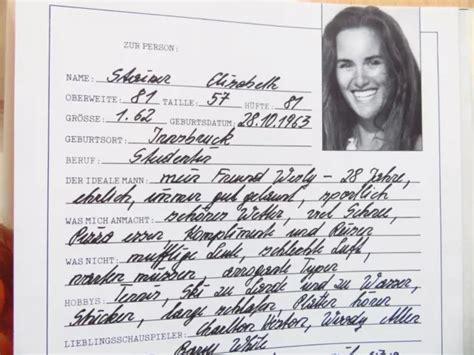 ZUR PERSON:
NAME: Steiner Elisabeth
OBERWEITE: 81 TAILLE: 57 HÜFTE: 81
GRÖSSE: 1.62 GEBURTSDATUM: 28.10.1963
GEBURTSORT: Innsbruck
BERUF: Studentin
DER IDEALE MANN: mein Freund – 28 Jahre,
ehrlich, immer gut gelaunt, sportlich
WAS MICH ANMACHT: schönes Wetter, viel Schnee,
Pizza essen Komplimente und Küsse
WAS NICHT: muffige Leute, schlechte Luft,
warten müssen, arrogante Typen
HOBBYS: Tennis, Ski zu Lande und zu Wasser,
lange schlafen Platten hören
LIEBLINGSSCHAUSPIELER: Charlton Heston, Woody Allen